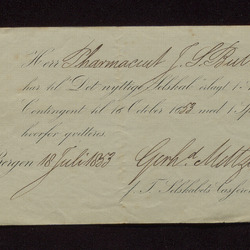 Herr Pharmaceut J. S. Bul
har til Det nyttige Selskab erlagt 1
Contingent til 16 October 1853 med 1 Sp
hvorfor qvitteres.
Bergen 18 Juli 1853
Gerh.
f. T. Selskabets Casser